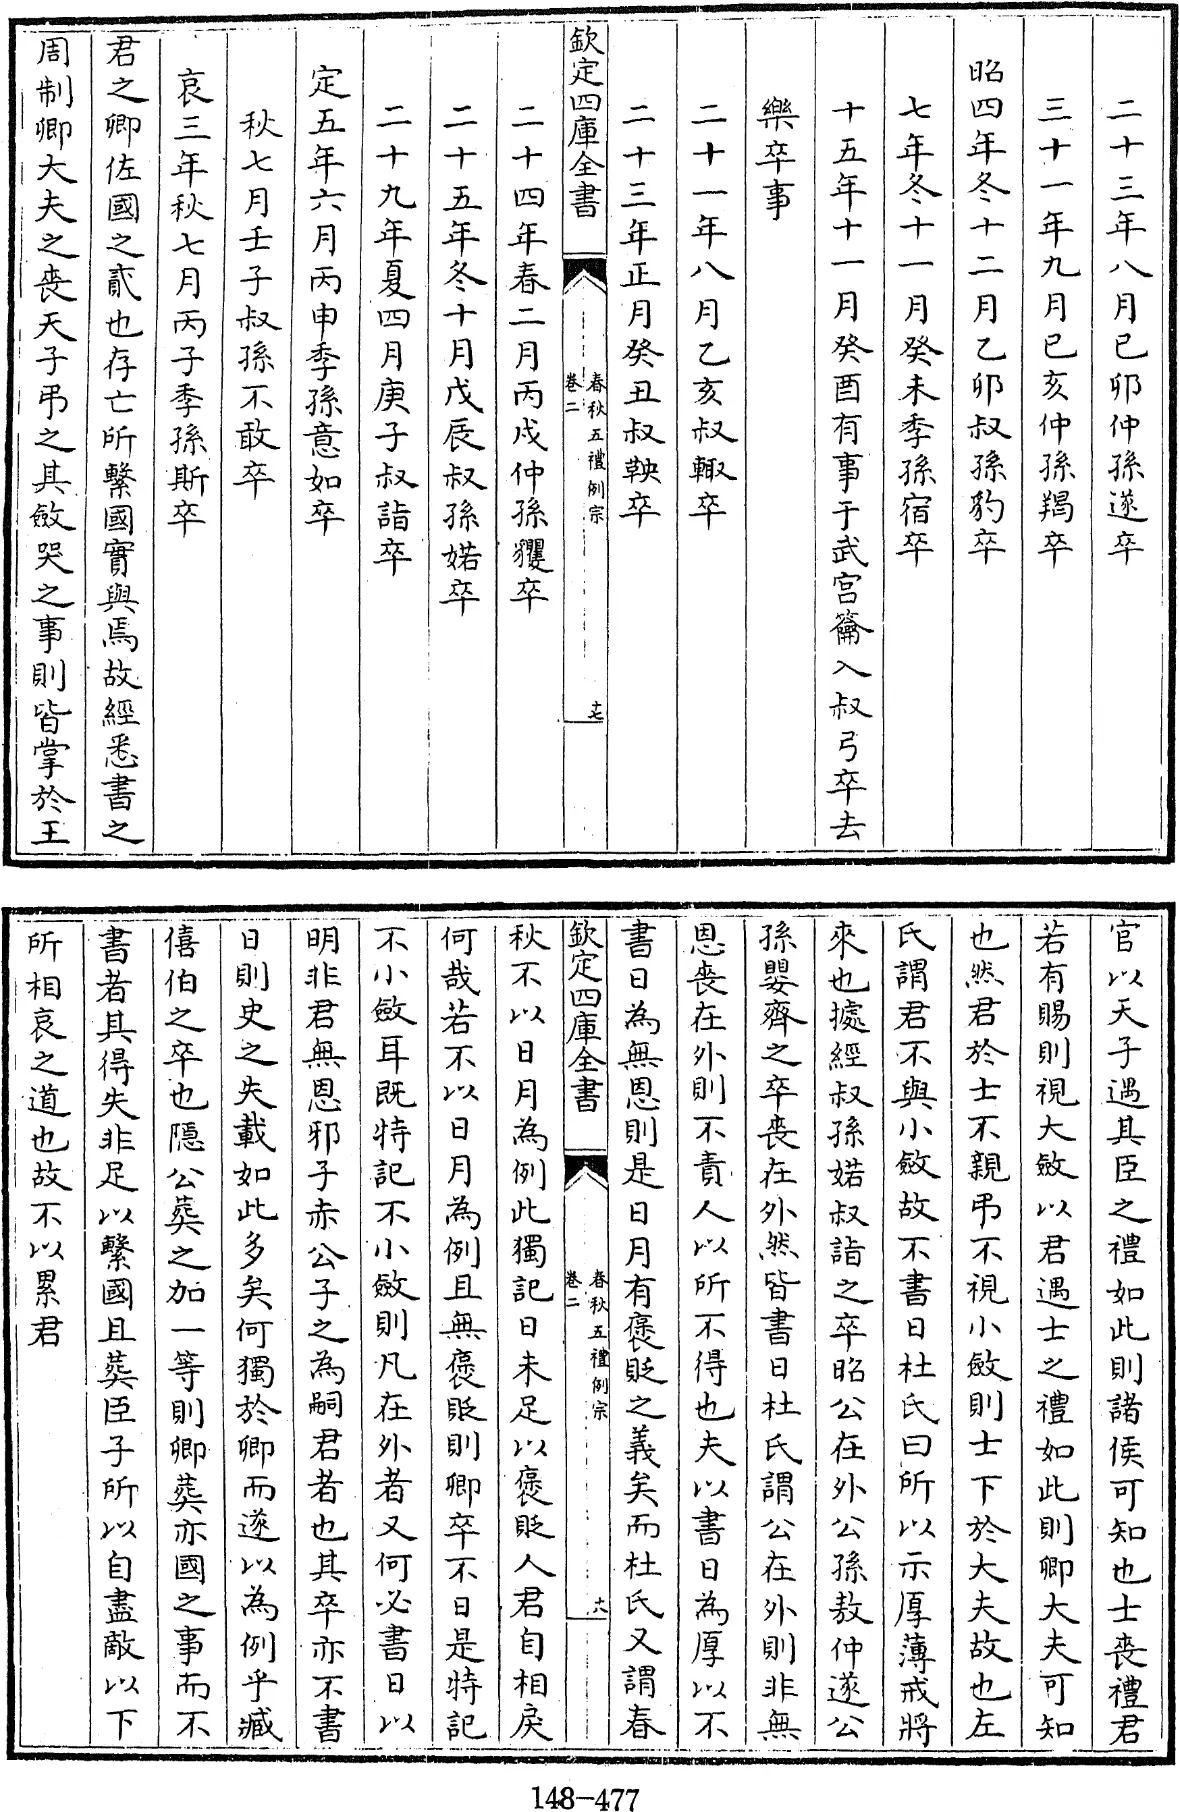 二十三年八月已卯仲孫遂卒
三十一年九月已亥仲孫羯卒
昭四年冬十二月乙卯叔孫豹卒
七年冬十一月癸未季孫宿卒
十五年十一月癸酉有事于武宫籥入叔弓卒去
樂卒事
二十一年八月乙亥叔輙卒
二十三年正月癸丑叔鞅卒
欽定四庫全書
春秋五禮例宗
卷二
十七
二十四年春二月丙戌仲孫貜卒
二十五年冬十月戊辰叔孫婼卒
二十九年夏四月庚子叔詣卒
定五年六月丙申季孫意如卒
秋七月壬子叔孫不敢卒
哀三年秋七月丙子季孫斯卒
君之卿佐國之貳也存亡所繫國實與焉故經悉書之
周制卿大夫之喪天子弔之其斂哭之事則皆掌於王
官以天子遇其臣之禮如此則諸侯可知也士喪禮君
若有賜則視大斂以君遇士之禮如此則卿大夫可知
也然君於士不親弔不視小斂則士下於大夫故也左
氏謂君不與小斂故不書日杜氏曰所以示厚薄戒將
來也據經叔孫婼叔詣之卒昭公在外公孫敖仲遂公
孫嬰齊之卒喪在外然皆書日杜氏謂公在外則非無
恩喪在外則不責人以所不得也夫以書日為厚以不
書日為無恩則是日月有褒貶之義矣而杜氏又謂春
欽定四庫全書
春秋五禮例宗
卷二
十八
秋不以日月為例此獨記日未足以褒貶人君自相戾
何哉若不以日月為例且無褒貶則卿卒不日是特記
不小斂耳既特記不小斂則凡在外者又何必書日以
明非君無恩邪子赤公子之為嗣君者也其卒亦不書
日則史之失載如此多矣何獨於卿而遂以為例乎臧
僖伯之卒也隱公葬之加一等則卿葬亦國之事而不
書者其得失非足以繫國且葬臣子所以自盡敵以下
所相哀之道也故不以累君
148-477